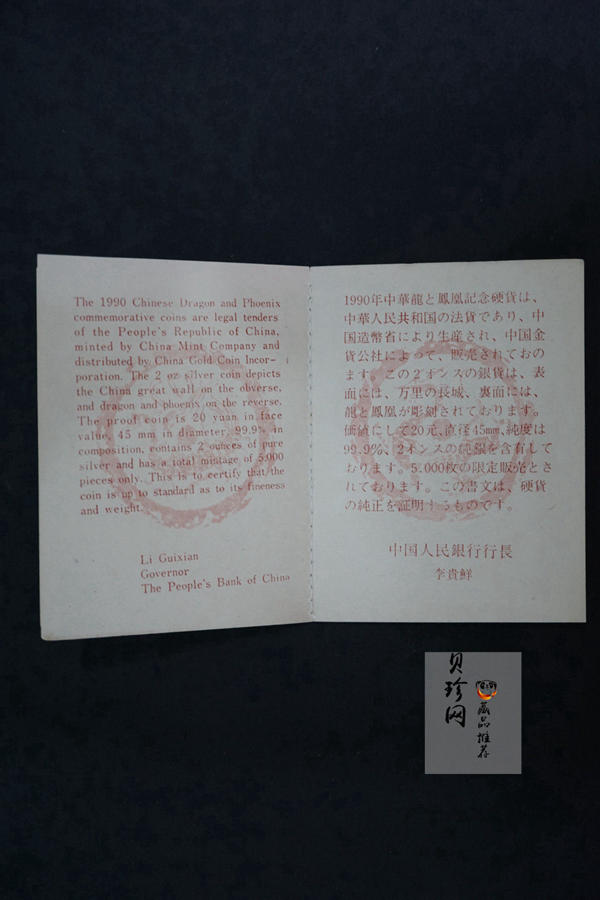 The 1990 Chinese Dragon and Phoenix
commemorative coins are legal tenders
of the People's Republic of China,
minted by China Mint Company and
distributed by China Gold Coin Incor-
poration. The 2 oz silver coin depicts
the China great wall on the obverse,
and dragon and phoenix on the reverse.
The proof coin is 20 yuan in face
value, 45 mm in diameter, 99.9% in
composition, contains 2 ounces of pure
silver and has a total mintage of 5.000
pieces only. This is to certify that the
coin is up to standard as to its fineness
and weight.
Li Guixian
Governor
The People's Bank of China
1990年中華龍と鳳凰記念硬貨は、
中華人民共和国の法貨であり、中
国造幣省により生産され、中国金
貨公社によって、販売されておの
ます。この2オンスの銀貨は、表
面には、万里の長城、裏面には、
龍と鳳凰が彫刻されております。
価値にして20元、直径45mm、純度は
99.9%、2オンスの純銀を含有して
おります。5.000枚の限定販売とさ
れております。この書文は、硬貨
の純正を証明するものです。
中国人民銀行行長
李貴鮮
贝珍网
藏品推荐